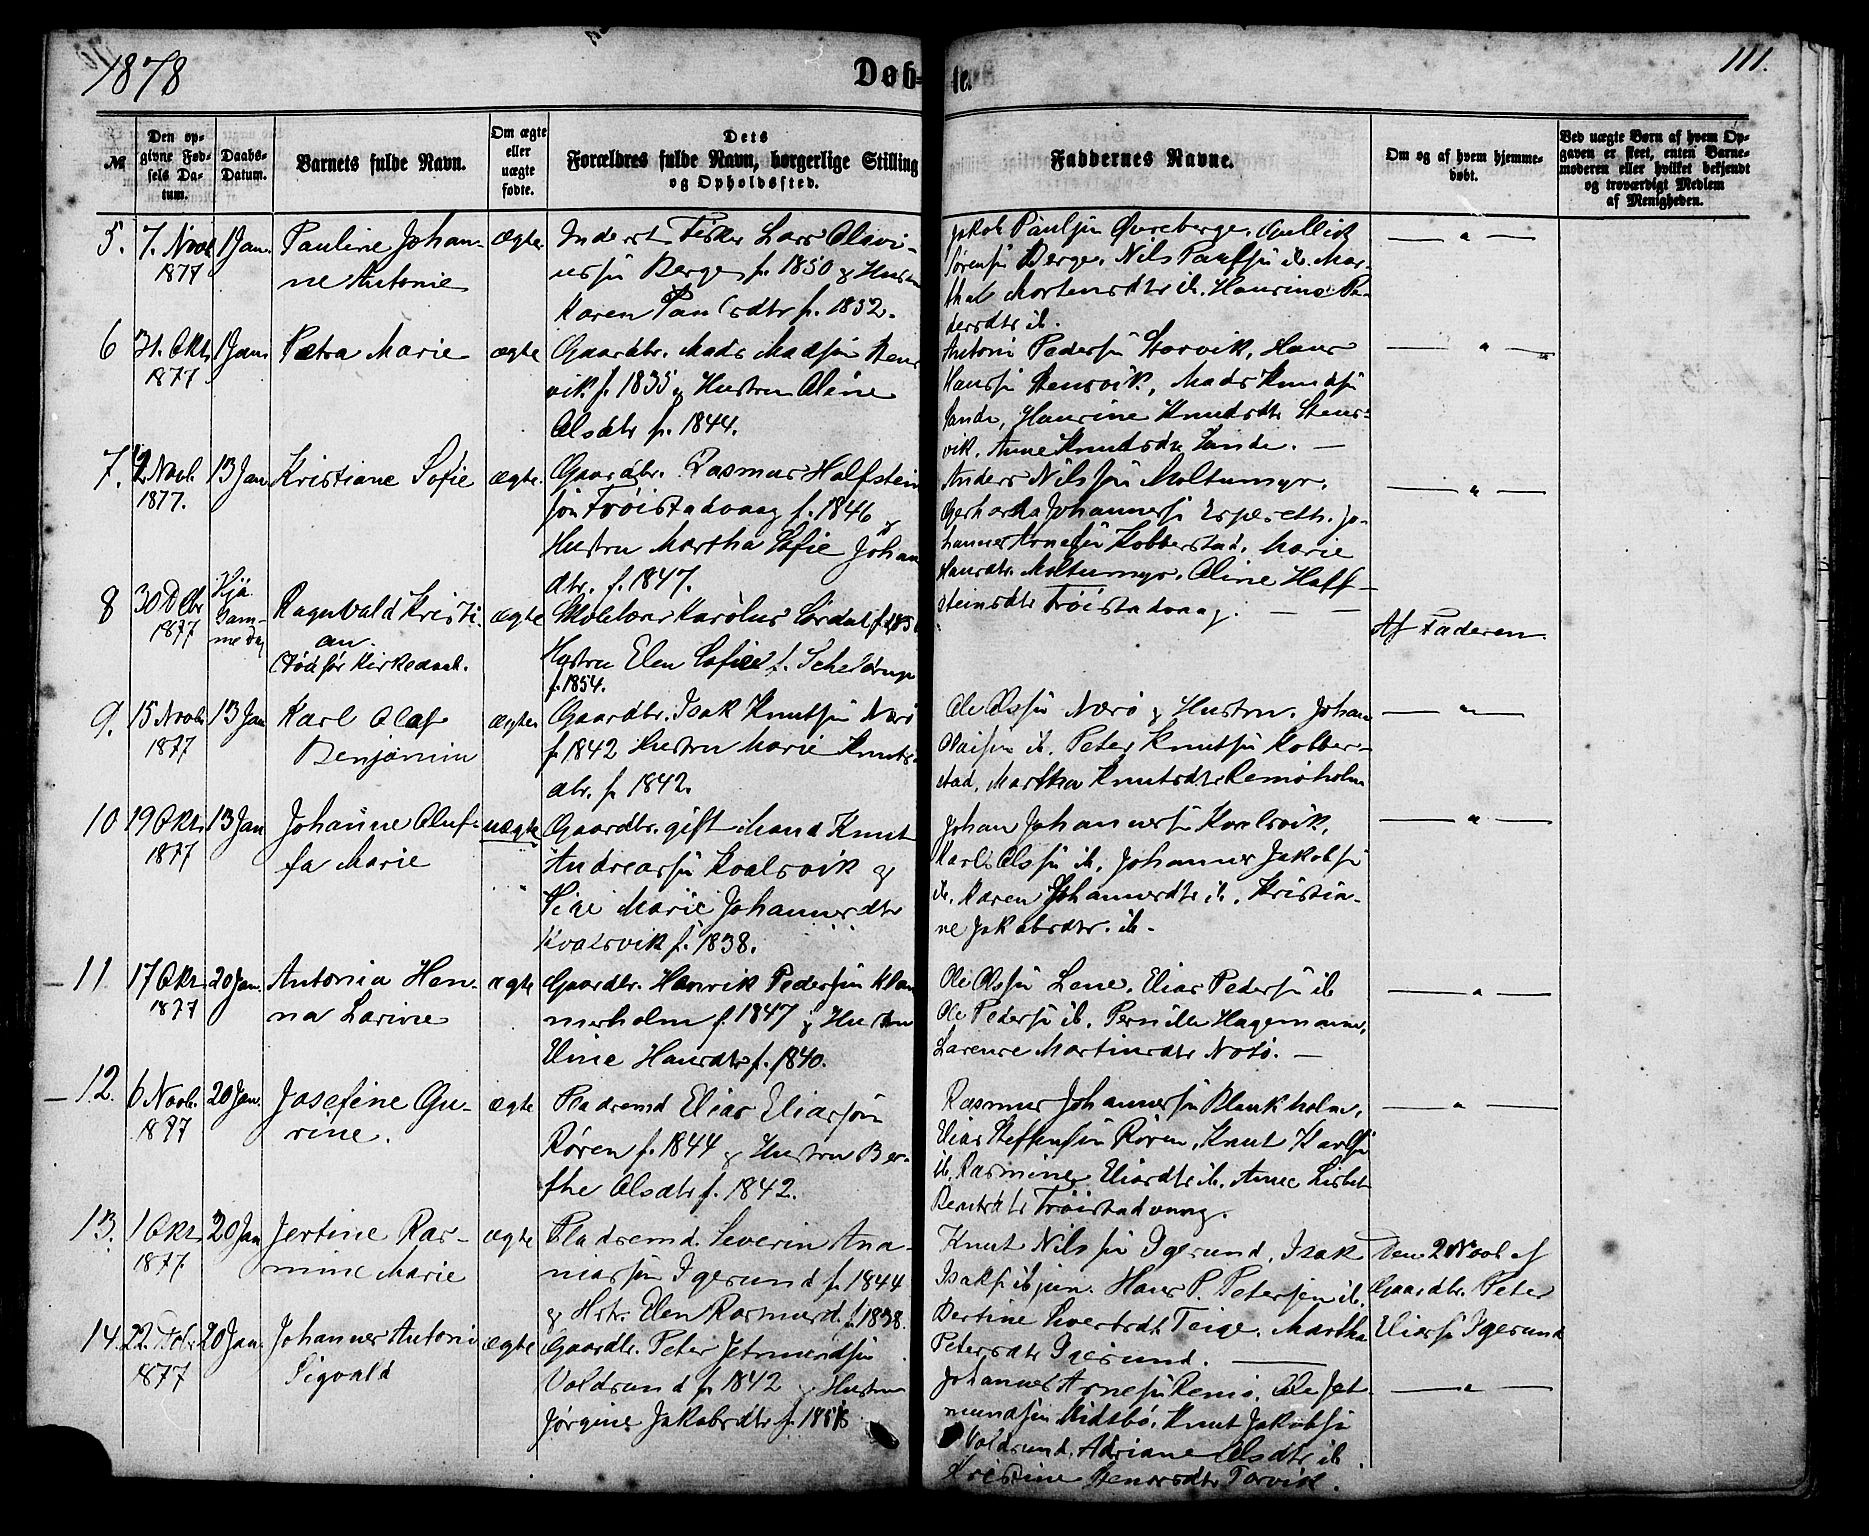 1878
Døb-
te.
111.
№
Den op-
givne Fød-
sels Da-
tum.
Daabs-
Datum.
Barnets fulde Navn.
Om ægte
eller
uægte
fødte.
Dets
Forældres fulde Navn, borgerlige Stilling
og Opholdssted.
Faddernes Navne.
Om og af hvem hjemme-
døbt.
Ved uægte Børn af hvem Op-
gaven er skeet, enten Barne-
moderen eller hvilket bekjendt
og troværdigt Medlem
af Menigheden.
5. 7. Novb 1877
1 Jan.
Pauline Johan-
ne Antonie
ægte
Inderst Fisker Lars Olavi-
ussøn Berge f. 1850 & Hustru
Karen Paulsdtr f. 1852.
Jakob Paulsøn Øvreberge, Gullik
Sørensøn Berge. Nils Paulsøn ib. Mar-
tha Mortensdtr ib. Hansine Pe-
dersdtr ib.
— " —
6 31. Okt. 1877
1 Jan.
Petra Marie
ægte
Gaardbr. Mads Madsøn Stens-
vik f. 1835 & Hustru Oline
Olsdtr f. 1844.
Antoni Pedersøn Storvik, Hans
Hanssøn Stensvik, Mads Knudsøn
Sande, Hansine Knudsdtr Stens-
vik, Anne Knudsdtr Sande. —
— " —
7. 12 Novb. 1877.
13 Jan
Kristiane Sofie
ægte.
Gaardbr. Rasmus Halfstein
søn Frøistadvaag f. 1846 &
Hustru Martha Sofie Johan
dtr. f. 1847.
Anders Nilssøn Moltumyr.
Gerhard Johannessøn Espeseth. Jo-
hannes Arnesøn Kobberstad. Marie
Hansdtr. Moltumyr. Oline Half-
steinsdtr Frøistadvaag. — —
— " —
8 30 Dcbr 1877
Hjem-
medøbt
Ragnvald Kristi-
an.
Død før Kirkedaab.
ægte
Skolelærer Karolus Sørdal f. 1850
Hustru Elen Sofie f. Schelderup
f. 1854.
Af Faderen.
9. 15 Novb. 1877
13 Jan
Karl Olaf
Benjamin
ægte
Gaardbr. Isak Knutsøn Nærø
f. 1842 Hustru Marie Knuts-
dtr. f. 1842.
Ole Olssøn Nærø & Hustru. Johan
Olaisøn ib. Peter Knutsøn Kobber-
stad, Martha Knutsdtr Remøholm
— " —
10 19 Okt. 1877
13 Jan
Johanne Oluf-
fa Marie
uægte
Gaardbr. gift Mand Knut
Andreassøn Kvalsvik &
Pige Marie Johannesdtr
Kvalsvik f. 1838.
Johan Johannessøn Kvalsvik,
Karl Olssøn ib. Johannes Jakobsøn
ib. Karen Johannesdtr ib. Kristia-
ne Jakobsdtr. ib.
— " —
11. 17 Okt. 1877
20 Jan.
Antonia Han-
na Larine
ægte
Gaardbr. Henrik Pedersøn Klam
merholm f. 1847 & Hustru
Eline Hansdtr f. 1840.
Ole Olssøn Lene. Elias Pedersøn ib
Ole Pedersøn ib. Pernille Hagemann.
Larense Martinsdtr Notø. —
— " —
12. 6 Novb. 1877
20 Jan.
Josefine Gu-
rine.
ægte
Pladsemd Elias Eliassøn
Røren f. 1844 & Hustru Ber-
the Olsdtr f. 1842.
Rasmus Johannessøn Blankholm.
Elias Steffensøn Røren. Knut Karlsøn
ib. Rasmine Eliasdtr ib. Anne Lisbet
Bentsdtr Frøistadvaag.
— " —
13. 1 Okt. 1877
20 Jan
Jertine Ras-
mine Marie
ægte
Pladsemd. Severin Ana-
niassøn Igesund f. 1844
& Hstr. Elen Rasmusd. f. 1838.
Knut Nilssøn Igesund, Isak
Isaksøn ib jun. Hans P. Petersøn ib.
Bertine Sivertsdtr Teige. Martha
Petersdtr Igesund. —
Den 2 Novb af
Gaardbr. Peter
Eliassøn Igesund
14. 22. 1877
20 Jan.
Johannes Antoni
Sigvald
ægte
Gaardbr. Peter Jetmundsøn
Voldsund f. 1842 & Hustru
Jørgine Jakobsdtr f.
Johannes Arnesøn Remø. Ole Jet-
mundsøn Midtbø. Knut Jakobsøn
Voldsund. Adriane Olsdtr ib
Kristine Stensdtr Torvik.
— " —